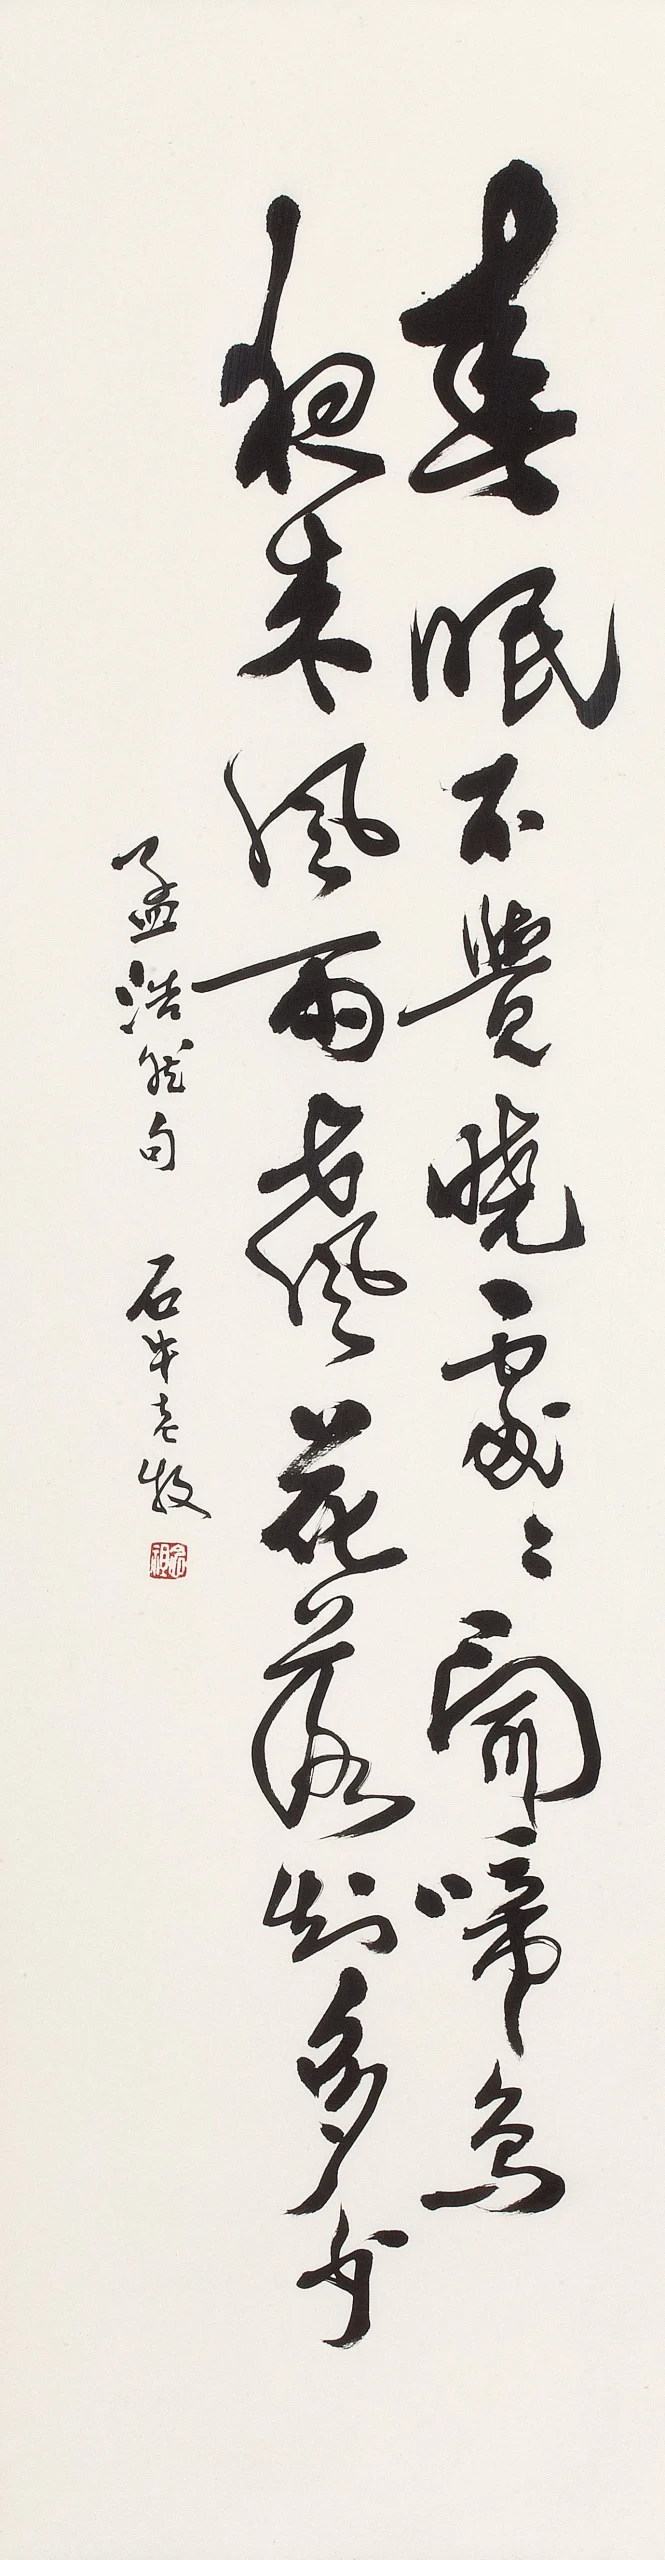 春眠不覺曉處〻聞啼鳥
夜來風雨聲花落知多少
孟浩然句 石牛老牧